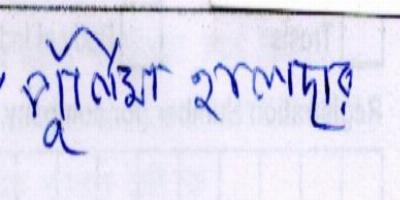 পূর্ণিমা হালদার